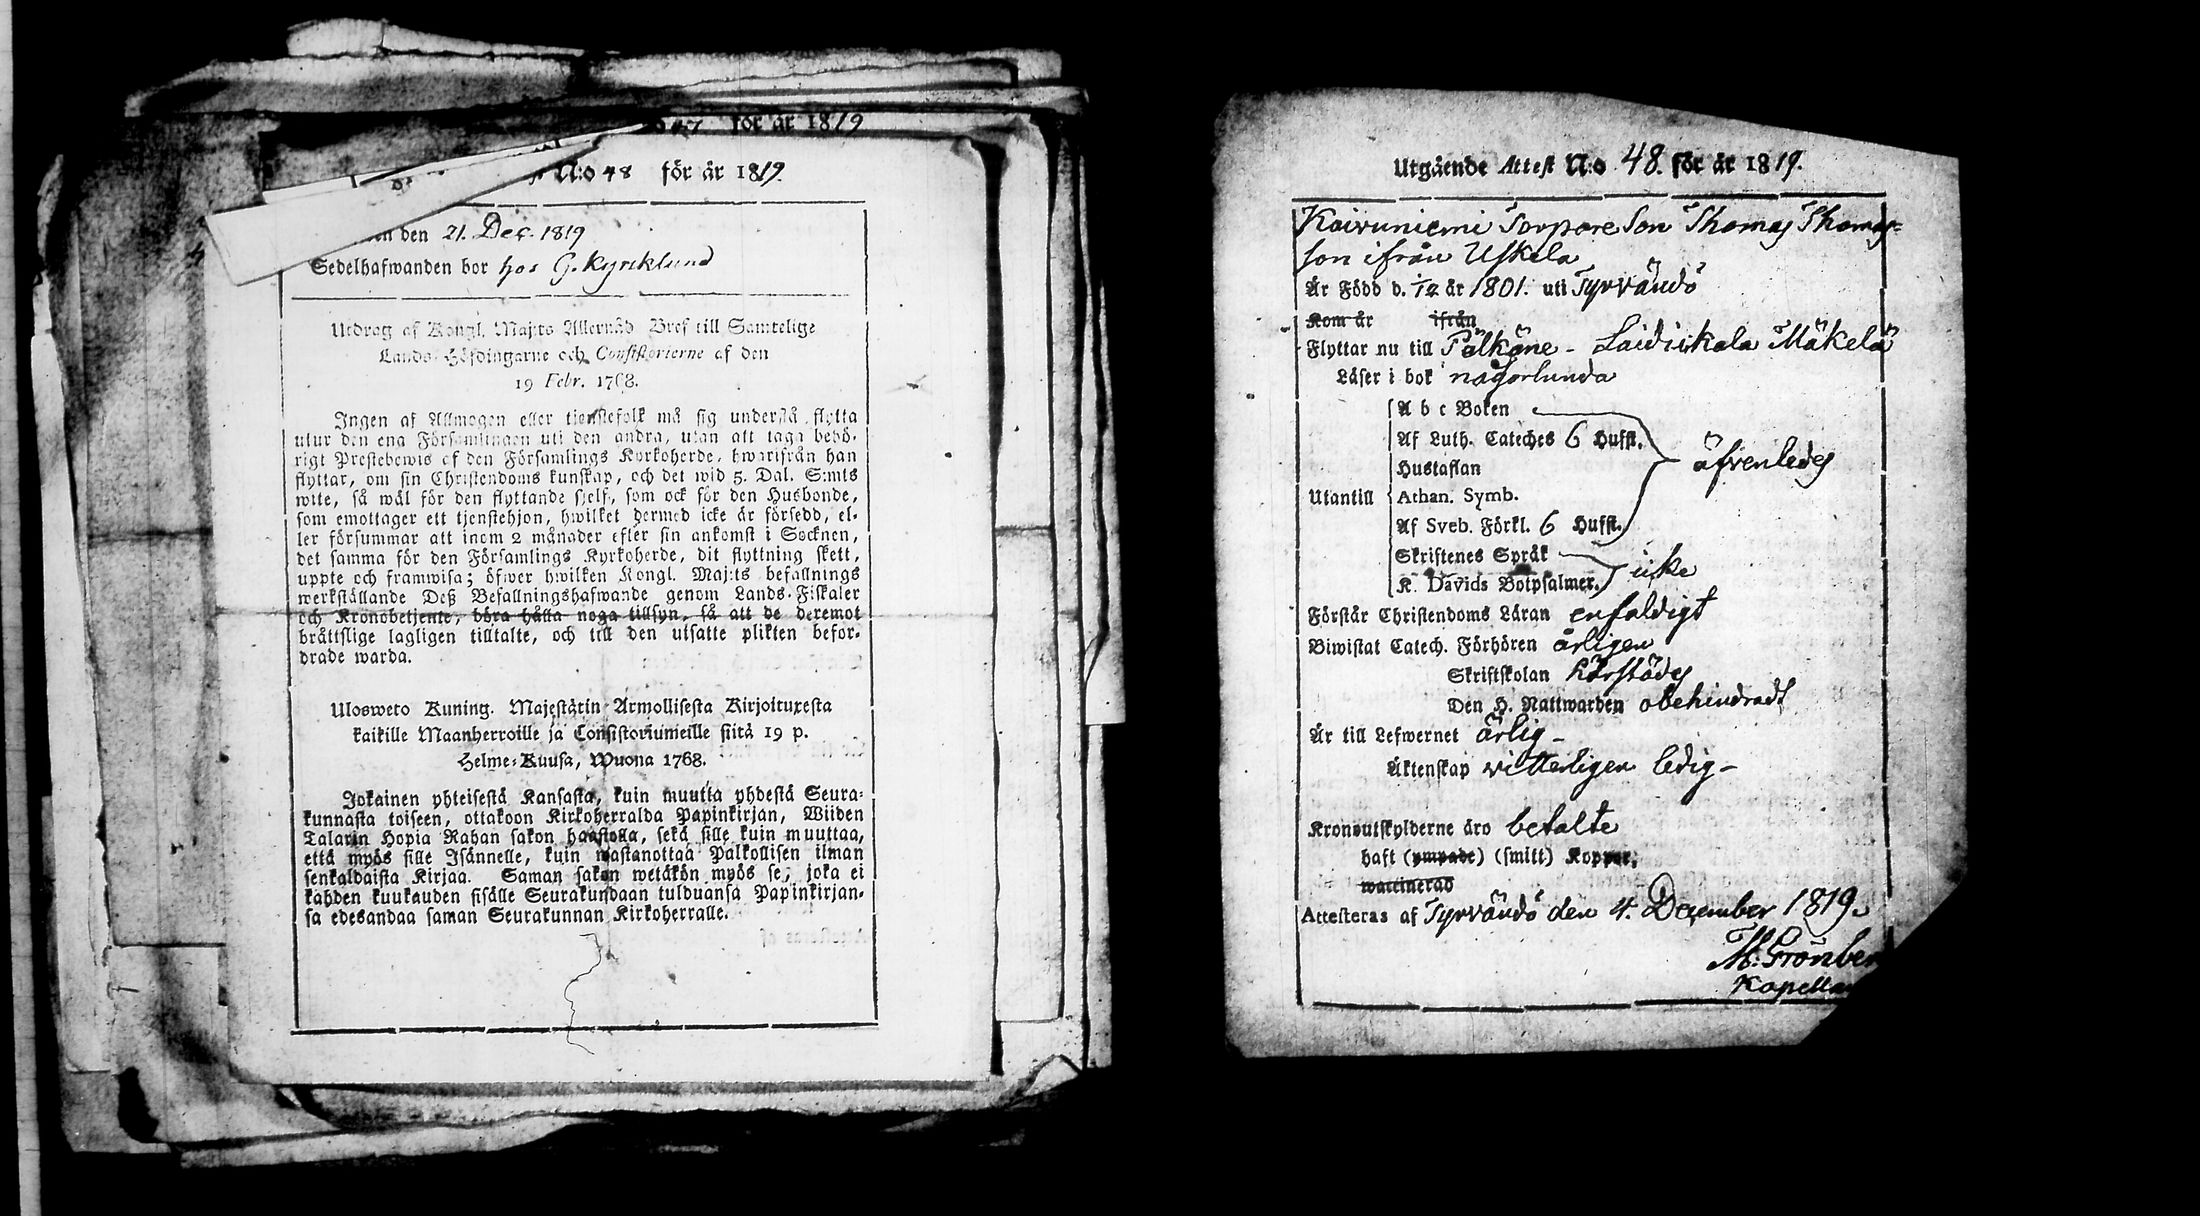 47 för år 1819
N:o 48 för år 1819.
den 21. Dec. 1819
Sedelhafwanden bor hos G. Kyrcklund
Utdrag af Kongl. Maj:ts Allernåd Bref till Samtelige
Lands-Höfdingarne och Consistorierne af den
19 Febr. 1768.
Ingen af Allmogen eller tienstefolk må sig understå flytta
utur den ena Församlingen uti den andra, utan att taga behö-
rigt Prestebewis af den Församlings Kyrkoherde, hwarifrån han
flyttar, om sin Christendoms kunskap, och det wid 5. Dal. S:mts
wite, så wäl för den flyttande sjelf, som ock för den Husbonde,
som emottager ett tjenstehjon, hwilket dermed icke är försedd, el-
ler försummar att inom 2 månader efter sin ankomst i Socknen,
det samma för den Församlings Kyrkoherde, dit flyttning skett,
uppte och framwisa; öfwer hwilken Kongl. Maj:ts befallnings
werkställande Deß Befallningshafwande genom Lands-Fiskaler
och Kronobetjente, böra hålla noga tillsyn, så att de deremot
bråttslige lagligen tilltalte, och till den utsatte plikten befor-
drade warda.
Ulosweto Kuning. Majestätin Armollisesta Kirjoituxesta
kaikille Maanherroille ja Consistoriumeille siitä 19 p.
Helme-Kuusa, Wuona 1768.
Jokainen yhteisestä Kansasta, kuin muutta yhdestä Seura-
kunnasta toiseen, ottakoon Kirkoherralda Papinkirjan, Wiiden
Talarin Hopia Rahan sakon haastolla, sekä sille kuin muuttaa,
että myös sille Isännelle, kuin wastanottaa Palkollisen ilman
senkaldaista Kirjaa. Saman sakon wetäkön myös se, joka ei
kahden kuukauden sisälle Seurakundaan tulduansa Papinkirjan-
sa edesandaa saman Seurakunnan Kirkoherralle.
Utgående Attest N:o 48. för år 1819.
Koivuniemi Torpare Son Thomas Thomas-
son ifrån Uskela
Är Född d. 12 år 1801. uti Tyrvändö
Kom år ifrån
Flyttar nu till Pälkäne - Laidiikala Mäkelä
Läser i bok någorlunda
A b c Boken
Af Luth. Cateches 6 Hufst.
Hustaflan
äfvenledes
Utantill Athan. Symb.
Af Sveb. Förkl. 6 Hufst.
Skriftenes Språk
icke
K. Davids Botpsalmer.
Förstår Christendoms Läran enfaldigt
Biwistat Catech. Förhören årligen
Skriftskolan härstädes
Den H. Nattwarden obehindradt
Är till Lefwernet ärlig -
Äktenskap vitterligen ledig -
Kronoutskylderne äro betalte
haft (ympade) (smitt) Koppor,
waccinerad
Attesteras af Tyrvändö den 4. December 1819.
M: Grönber
Kapella